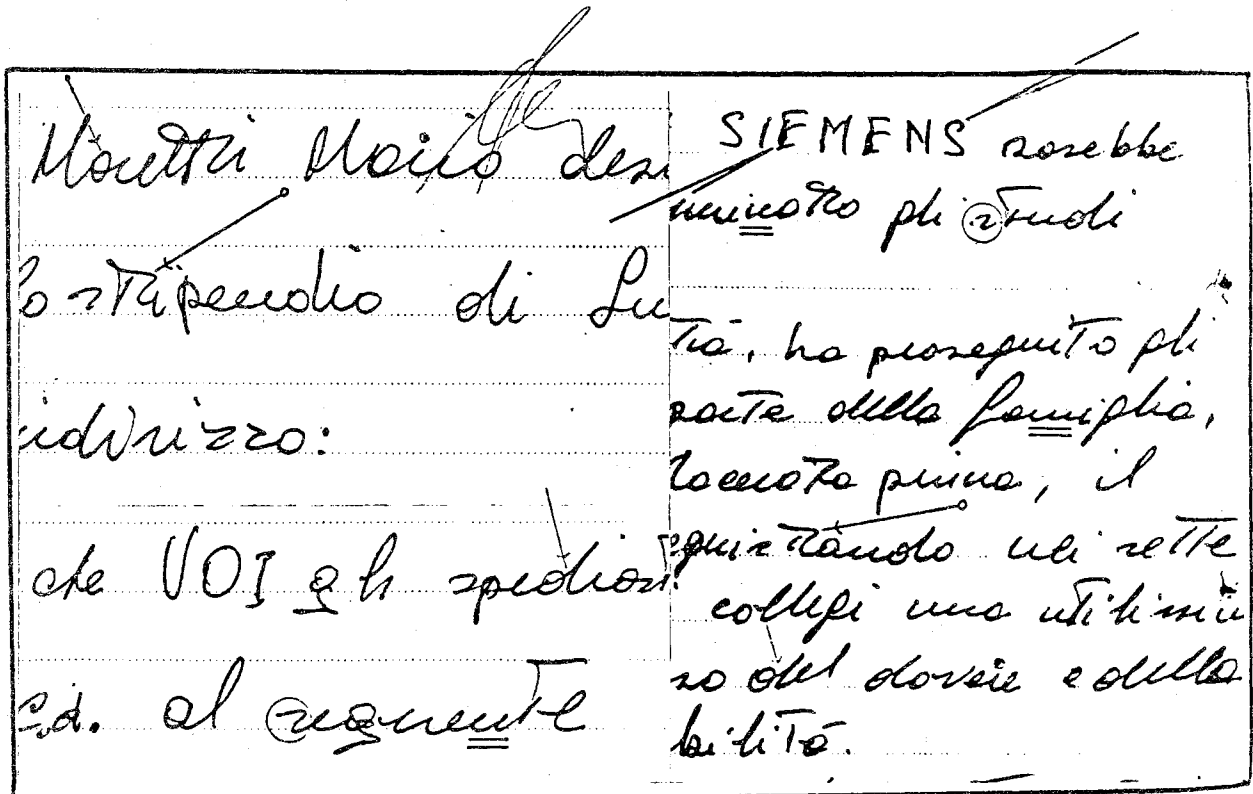 Moretti Mario desi
lo stipendio di Lu
indirizzo:
che VOI gli spedias
c.d. al seguente
SIEMENS sarebbe
minato gli studi
tià, ha proseguito gli
parte della famiglia,
prima, il
quistando nei sette
collegi una utilissi
so del dovere e della
bilità.